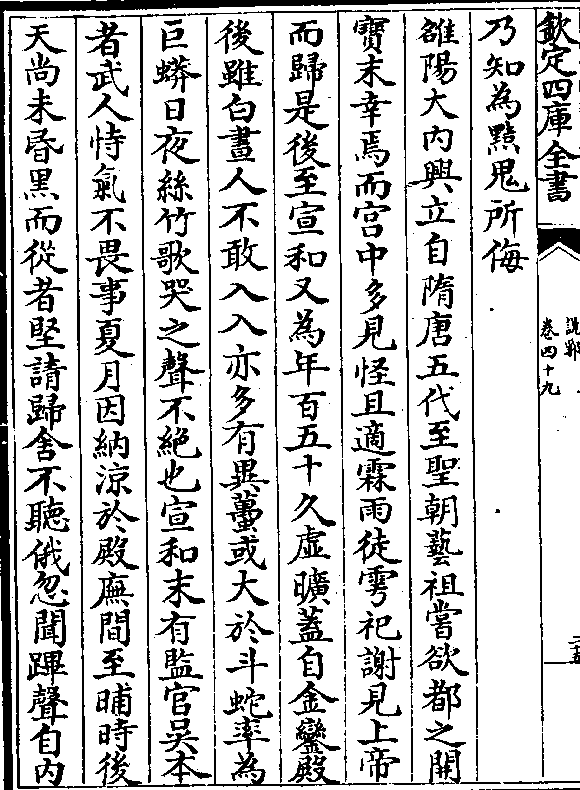 欽定四庫全書
說郛
卷四十九
二五
乃知為黠鬼所侮
雒陽大内興立自隋唐五代至聖朝藝祖嘗欲都之開
寶末幸焉而宫中多見怪且適霖雨徒雩祀謝見上帝
而歸是後至宣和又為年百五十久虛曠蓋自金鑾殿
後雖白晝人不敢入入亦多有異蠆或大於斗蛇率為
巨蟒日夜絲竹歌哭之聲不絶也宣和末有監官吴本
者武人恃氣不畏事夏月因納涼於殿廡間至晡時後
天尚未昏黑而從者堅請歸舍不聽俄忽聞蹕聲自内